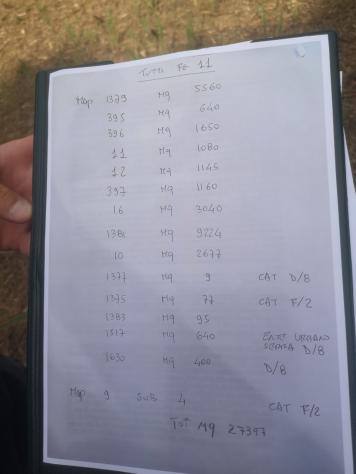 TUTTI FG 11
Map 1379 Mq 5560
395 Mq 640
396 Mq 1650
11 Mq 1080
12 Mq 1145
397 Mq 1160
16 Mq 3040
Mq 9224
10 Mq 2677
1377 Mq 9 CAT D/8
1375 Mq 77 CAT F/2
1383 Mq 95
1317 Mq 640 ENTE URBANO
D/8
1630 Mq 400 D/8
Map 9 SUB 4 CAT F/2
TOT Mq 27397